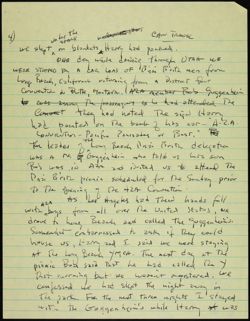 4)
we slept, on blankets Harry had packed.
One day while driving through Utah we
were stopped by a car load of B'nai B'rith men from
Long Beach, California returning from a District Four
Convention in Butte, Montana.
had attended the
Convention
had noted the sign Harry
had painted on the back of his car - "AZA
Convention - Pacific Panaceas or Bust."
The leader of Long Beach, B'nai B'rith delegation
was a Mr. Guggenheim who told us his son
Bob was in AZA and invited us to attend the
B'nai B'rith picnic scheduled for the Sunday prior
to the opening of the AZA Convention
As Los Angeles had their hands full
with boys from all over the United States, we
drove to Long Beach and called the Guggenheim's
Somewhat embarrassed to ask if they could
house us, Harry and I said we were staying
at the Long Beach YMCA. The next day at the
picnic Bob said that he had called the Y
last evening but we weren't registered. We
confessed we had slept the night away in
the park. For the next three nights I stayed
with the Guggenheim's while Harry was